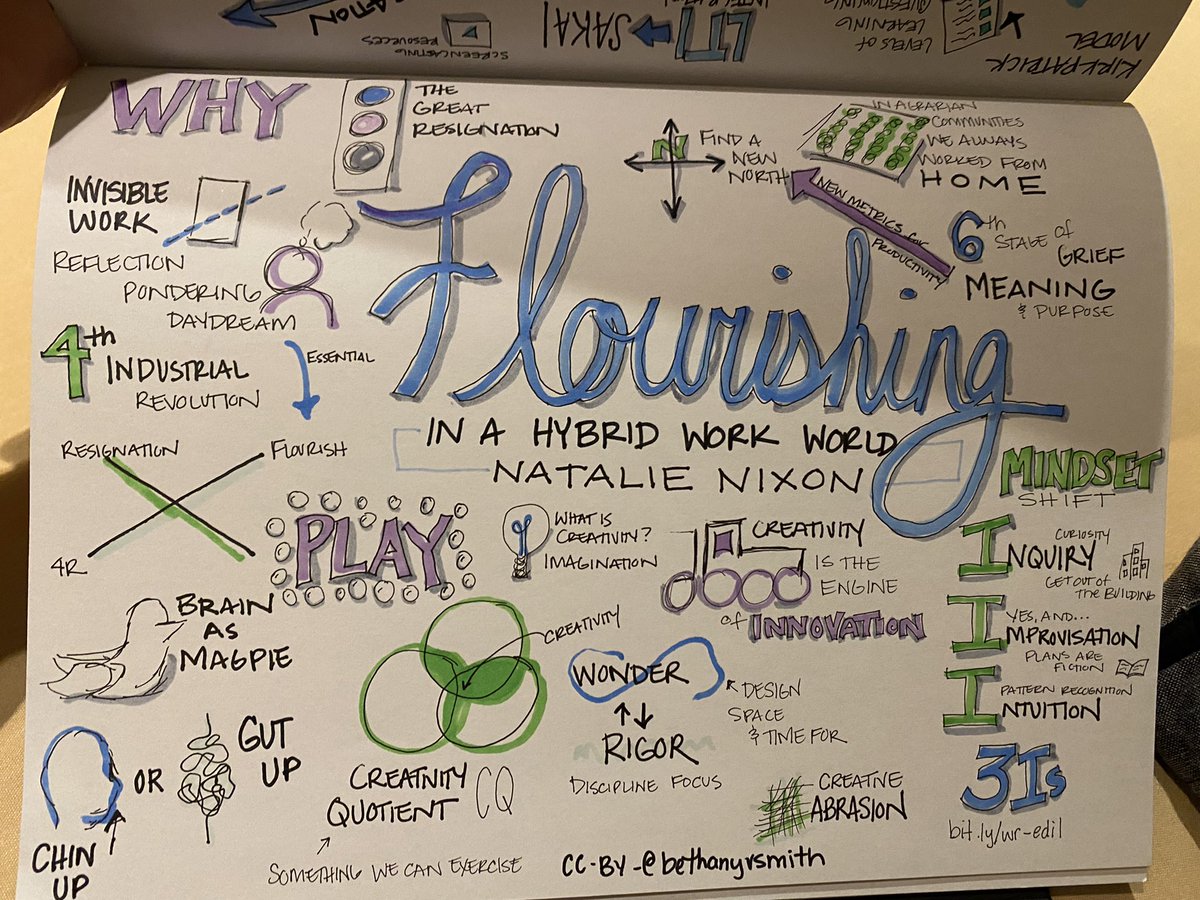 KIRKPATRICK
MODEL
LEVELS OF
LEARNING
QUESTIONING
LTI
SAKAI
SCREENCASTING
RESOURCES
WHY
THE
GREAT
RESIGNATION
N
FIND A
NEW
NORTH
IN AGRARIAN
COMMUNITIES
WE ALWAYS
WORKED FROM
HOME
NEW METRICS for
PRODUCTIVITY
INVISIBLE
WORK
REFLECTION
PONDERING
DAYDREAM
6th STAGE of
GRIEF
MEANING
& PURPOSE
4th
INDUSTRIAL
REVOLUTION
ESSENTIAL
Flourishing
IN A HYBRID WORK WORLD
NATALIE NIXON
RESIGNATION
FLOURISH
4R
PLAY
WHAT IS
CREATIVITY?
IMAGINATION
CREATIVITY
IS THE
ENGINE
of INNOVATION
MINDSET
SHIFT
CURIOSITY
INQUIRY
GET OUT OF
THE BUILDING
YES, AND...
IMPROVISATION
PLANS ARE
FICTION
PATTERN RECOGNITION
INTUITION
3Is
bit.ly/wr-edil
BRAIN
AS
MAGPIE
CREATIVITY
WONDER
RIGOR
DISCIPLINE FOCUS
DESIGN
SPACE
& TIME FOR
CHIN
UP
OR
GUT
UP
CREATIVITY
QUOTIENT
CQ
SOMETHING WE CAN EXERCISE
CREATIVE
ABRASION
CC-BY-@bethanyvsmith